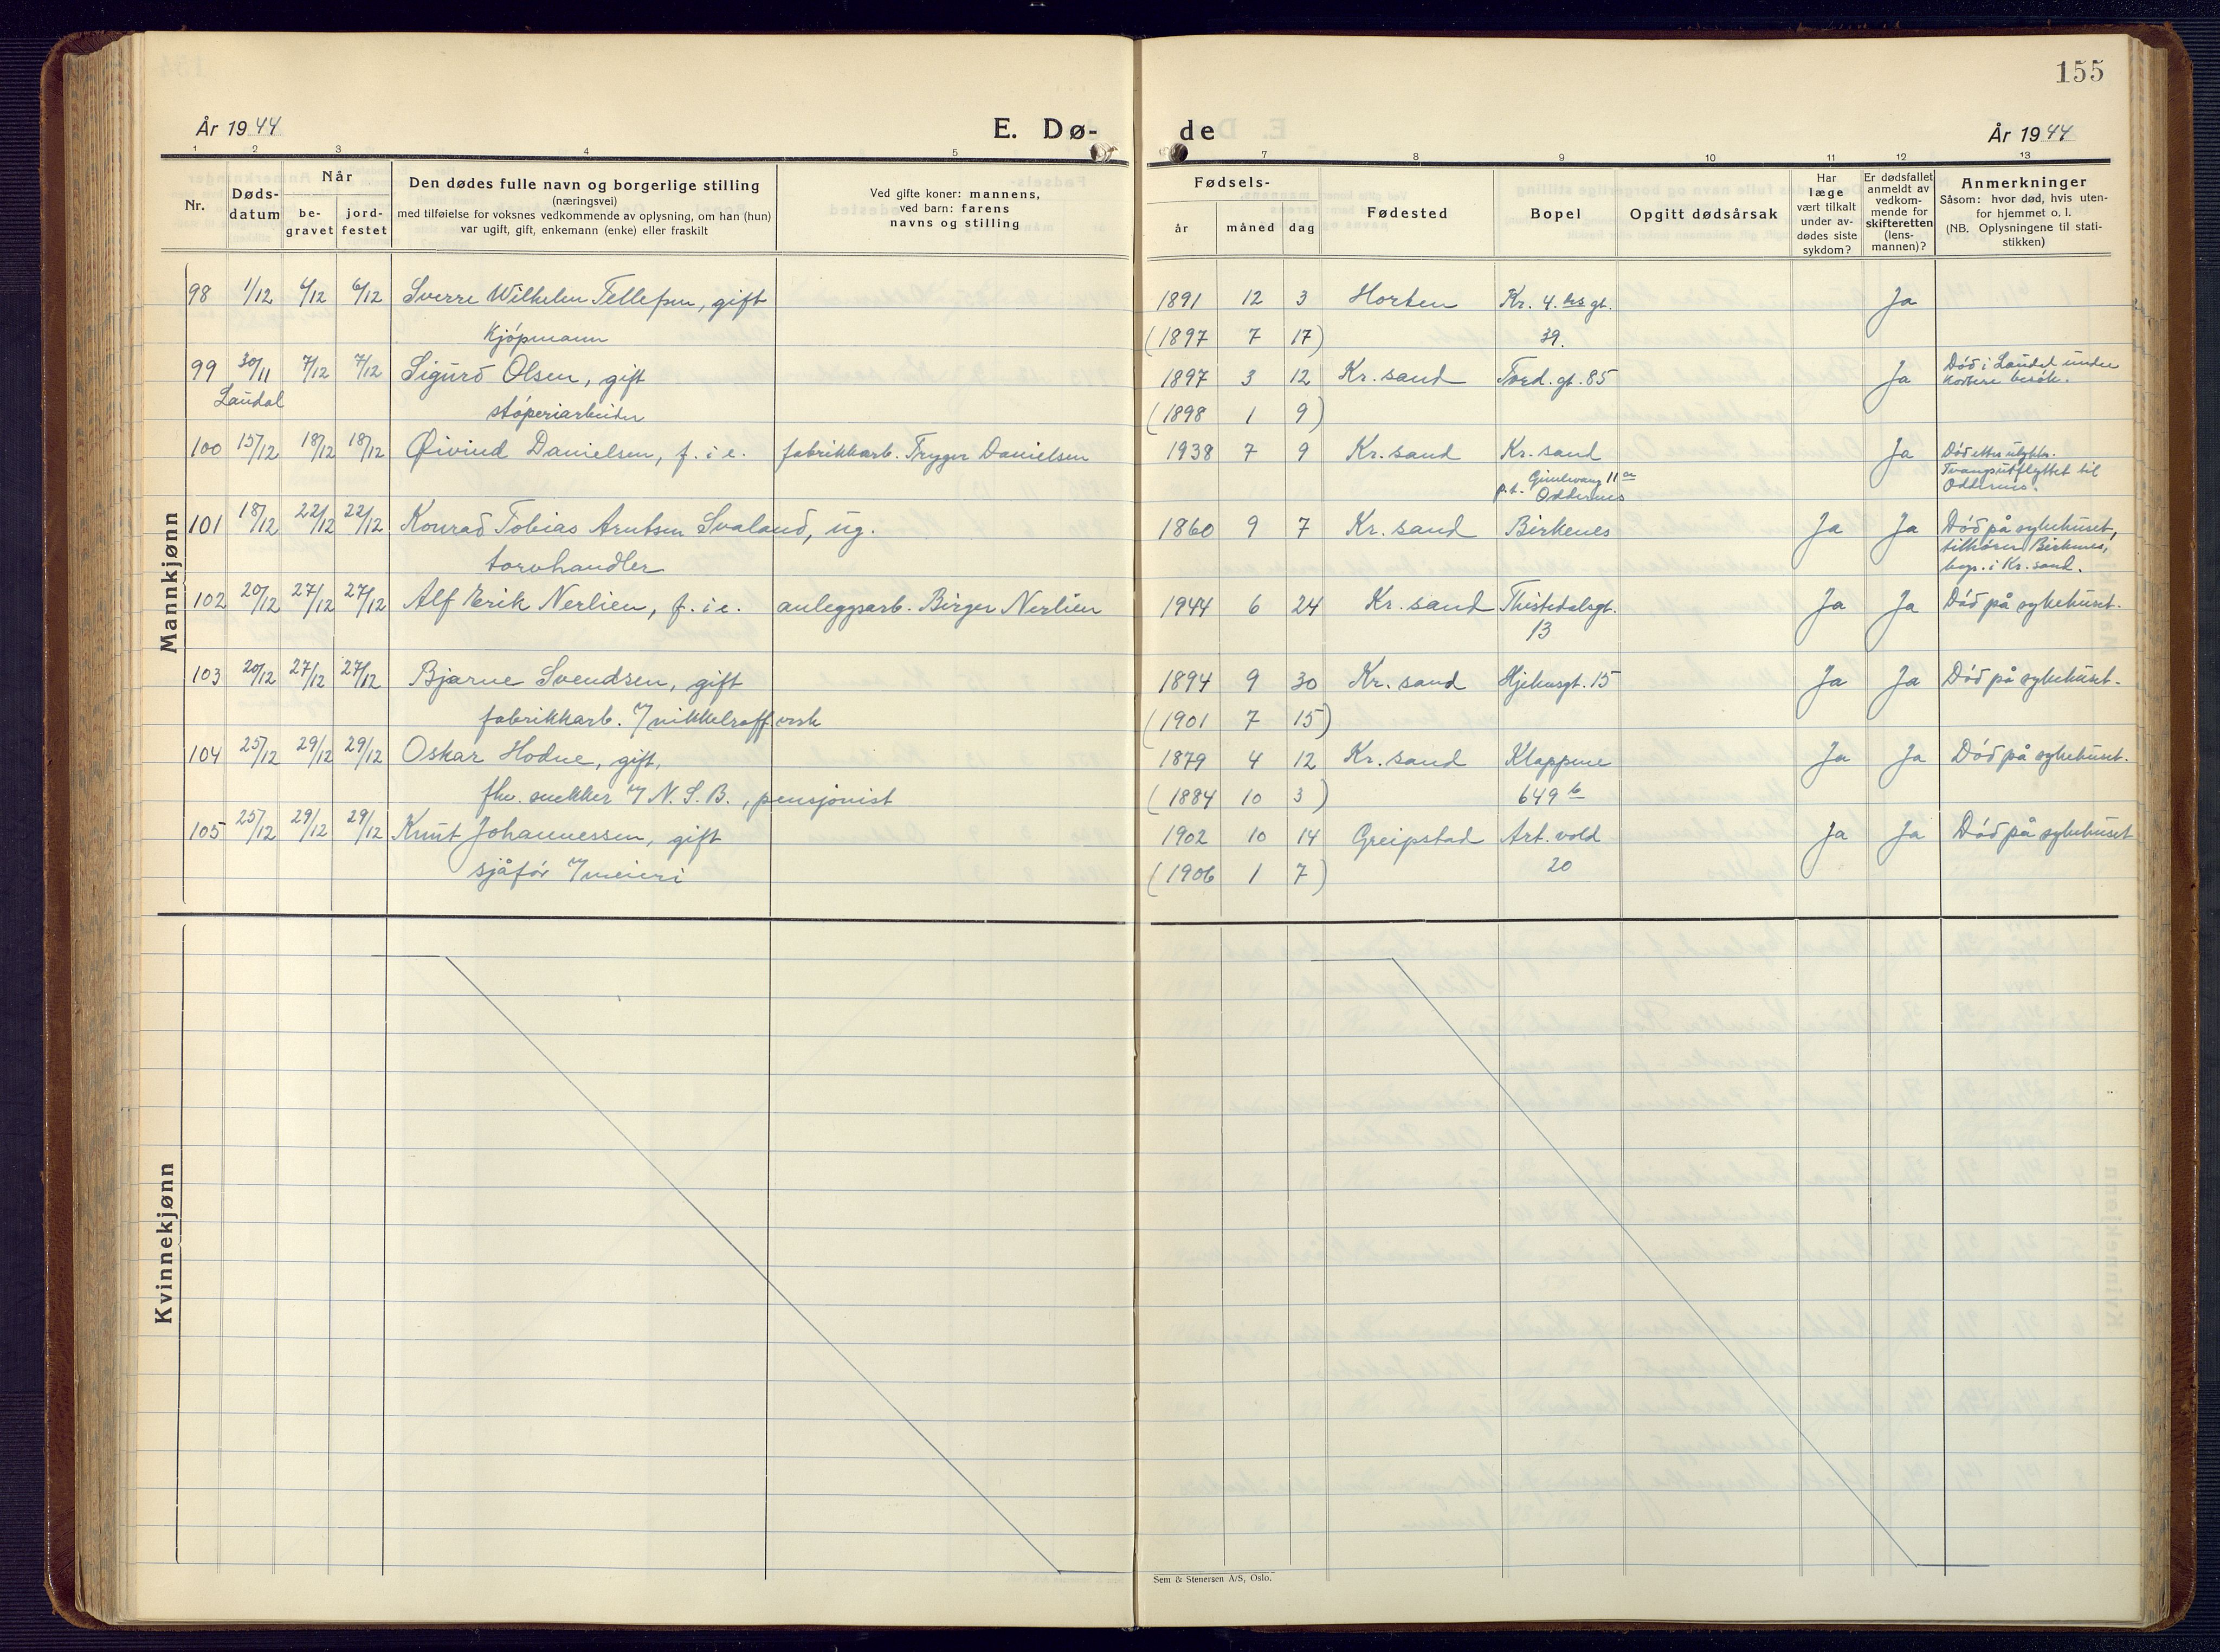 155
År 1944
E. Dø-
de
År 1944
1 2 3 4 5 7 8 9 10 11 12 13
Nr.
Døds-
datum
Når
be-
gravet
jord-
festet
Den dødes fulle navn og borgerlige stilling
(næringsvei)
med tilføielse for voksnes vedkommende av oplysning, om han (hun)
var ugift, gift, enkemann (enke) eller fraskilt
Ved gifte koner: mannens,
ved barn: farens
navns og stilling
Fødsels-
år måned dag
Fødested
Bopel
Opgitt dødsårsak
Har
læge
vært tilkalt
under av-
dødes siste
sykdom?
Er dødsfallet
anmeldt av
vedkom-
mende for
skifteretten
(lens-
mannen)?
Anmerkninger
Såsom: hvor død, hvis uten-
for hjemmet o. l.
(NB. Oplysningene til stati-
stikken)
Mannkjønn
98 1/12 6/12 6/12 Sverre Wilhelm Tellefsen, gift 1891 12 3 Horten Kr. 4. gt. Ja
Kjøpmann (1897 7 17) 39.
99 30/11 7/12 7/12 Sigurd Olsen, gift 1897 3 12 Kr. sand Tord. gt. 85 Ja Død i Laudal under
kortere besøk.
Laudal støperiarbeider (1898 1 9)
100 15/12 18/12 18/12 Øivind Danielsen, f. i e. fabrikkarb. Trygve Danielsen 1938 7 9 Kr. sand Kr. sand Ja Død etter ulykke.
Tvangsutflyttet til
Oddernes.
p.t. Gimlevang 11
Oddernes
101 18/12 22/12 22/12 Konrad Tobias Arntsen Svaland, ug. 1860 9 7 Kr. sand Birkenes Ja Ja Død på sykehuset,
tilhører Birkenes,
i Kr. sand.
torvhandler
102 20/12 27/12 27/12 Alf Erik Nerlien, f. i e. anleggsarb. Birger Nerlien 1944 6 24 Kr. sand Thistedalsgt. Ja Ja Død på sykehuset.
13
103 20/12 27/12 27/12 Bjarne Svendsen, gift 1894 9 30 Kr. sand 15 Ja Ja Død på sykehuset.
fabrikkarb. v/ nikkelraff.verk (1901 7 15)
104 25/12 29/12 29/12 Oskar Hodne, gift, 1879 4 12 Kr. sand Klappene Ja Ja Død på sykehuset.
fhv. snekker v/ N. S. B., pensjonist (1884 10 3) 649 b
105 25/12 29/12 29/12 Knut Johannessen, gift 1902 10 14 Greipstad Art. vold Ja Ja Død på sykehuset
sjåfør v/ meieri (1906 1 7) 20
Kvinnekjønn
Sem & Stenersen A/S, Oslo.